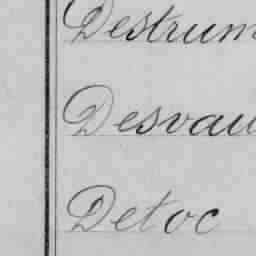 Destrum
Desvau
Detoc